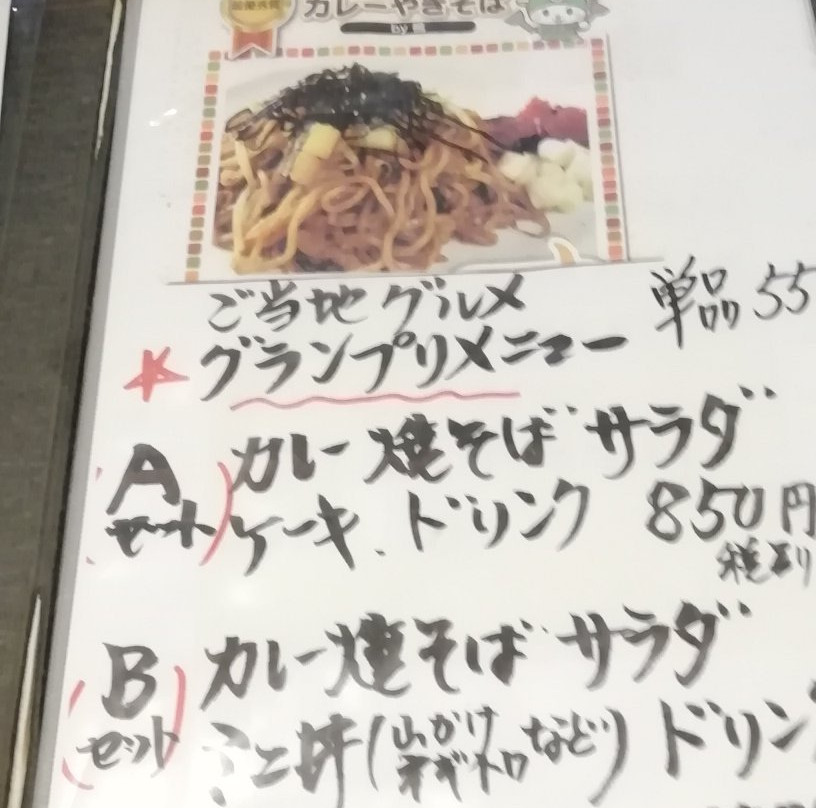 カレーやきそば
ご当地グルメ
グランプリメニュー 単品55
Aセット カレー焼そば サラダ
ケーキ、ドリンク 850円
B セット カレー焼そば サラダ
ミニ丼(山かけ ネギトロ など) ドリン